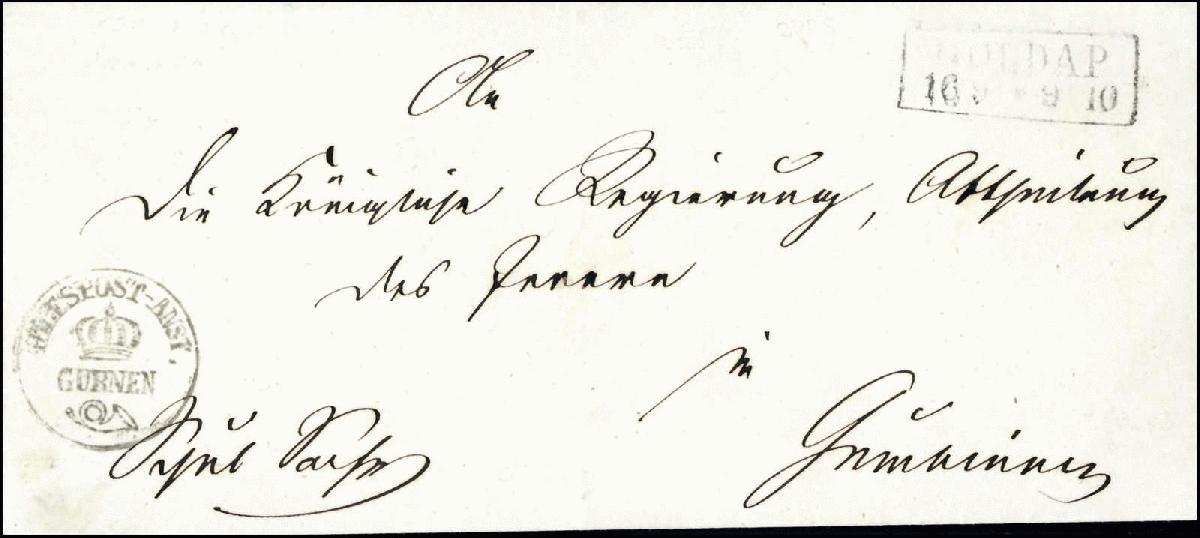 GOLDAP
16 9 * 9 10
An
die Königliche Regierung, Abtheilung
des Innern
in
Gumbinnen
HILFSPOST-ANST.
GURNEN
Schul Sache